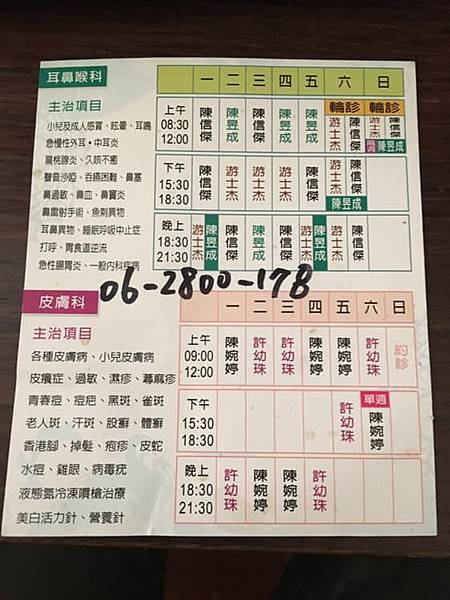 耳鼻喉科
一 二 三 四 五 六 日
主治項目
小兒及成人感冒、眩暈、耳鳴
急慢性外耳、中耳炎
扁桃腺炎、久咳不癒
聲音沙啞、吞嚥困難、鼻塞
鼻過敏、鼻血、鼻竇炎
鼻雷射手術、魚刺異物
耳鼻異物、睡眠呼吸中止症
打呼、胃食道逆流
急性腸胃炎、一般內科疾病
上午 08:30 12:00
陳信傑 陳昱成 陳信傑 陳昱成 陳昱成 輪診 游士杰 陳信傑 輪診 游士杰 陳信傑 陳昱成
下午 15:30 18:30
陳信傑 游士杰 游士杰 游士杰 陳信傑 游士杰 陳信傑 陳昱成
晚上 18:30 21:30
游士杰 陳昱成 陳信傑
06-2800-178
皮膚科
一 二 三 四 五 六 日
主治項目
各種皮膚病、小兒皮膚病
皮癢症、過敏、濕疹、蕁麻疹
青春痘、痘疤、黑斑、雀斑
老人斑、汗斑、股癬、體癬
香港腳、掉髮、疱疹、皮蛇
水痘、雞眼、病毒疣
液態氮冷凍噴槍治療
美白活力針、營養針
上午 09:00 12:00
陳婉婷 許幼珠 許幼珠 陳婉婷 陳婉婷 許幼珠 約診
下午 15:30 18:30
許幼珠 單週 陳婉婷
晚上 18:30 21:30
許幼珠 陳婉婷 陳婉婷 許幼珠